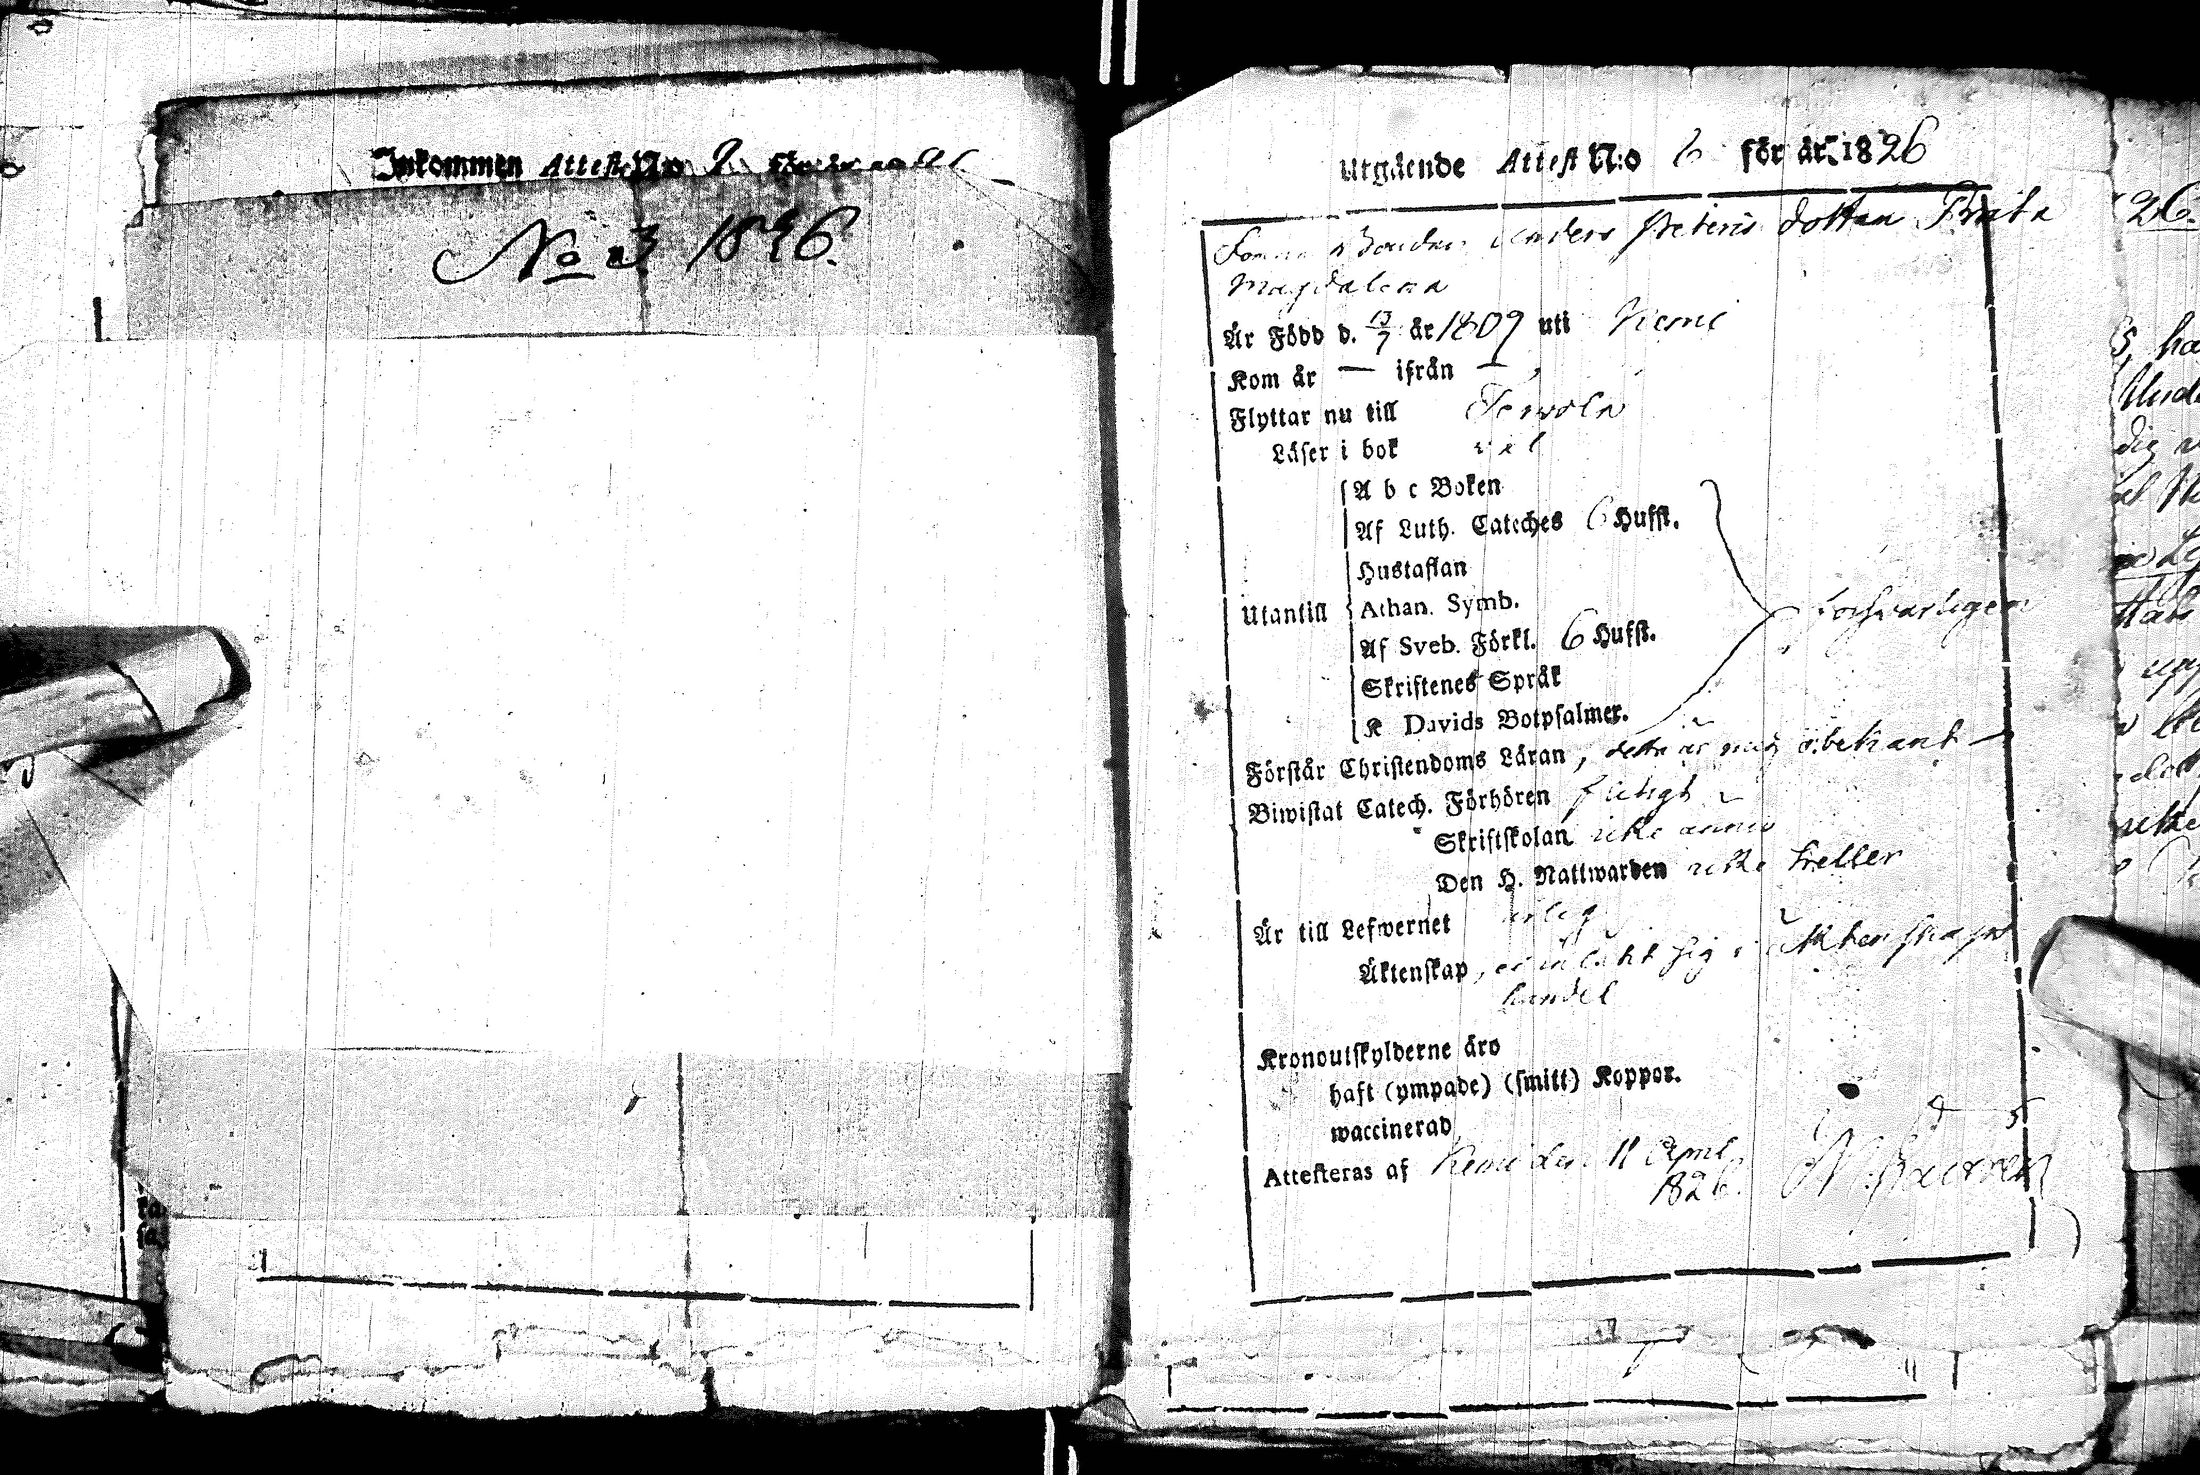 Inkommen Attest No 2
No 3 1826.
Utgående Attest N:o 6 för år 1826
Bonden Anders Peteris dotter Brita
Magdalena
Är Född d. 13/7 år 1809 uti Kemi
Kom år — ifrån —
Flyttar nu till Terwola
Läser i bok väl
Utantill
A b c Boken
Af Luth. Cateches 6 Hufst.
Hustaflan
Athan. Symb.
Af Sveb. Förkl. 6 Hufst.
Skriftenes Språk
K Davids Botpsalmer.
försvarligen
Förstår Christendoms Läran, detta är mig obekant
Biwistat Catech. Förhören flitigt
Skriftskolan icke ännu
Den H. Nattwarden icke heller
Är till Lefwernet ärlig
Äktenskap, ej inlåtit sig i äktenskaps
handel
Kronoutskylderne äro
haft (ympade) (smitt) Koppor.
waccinerad
Attesteras af Kemi den 11 April
1826.
26.